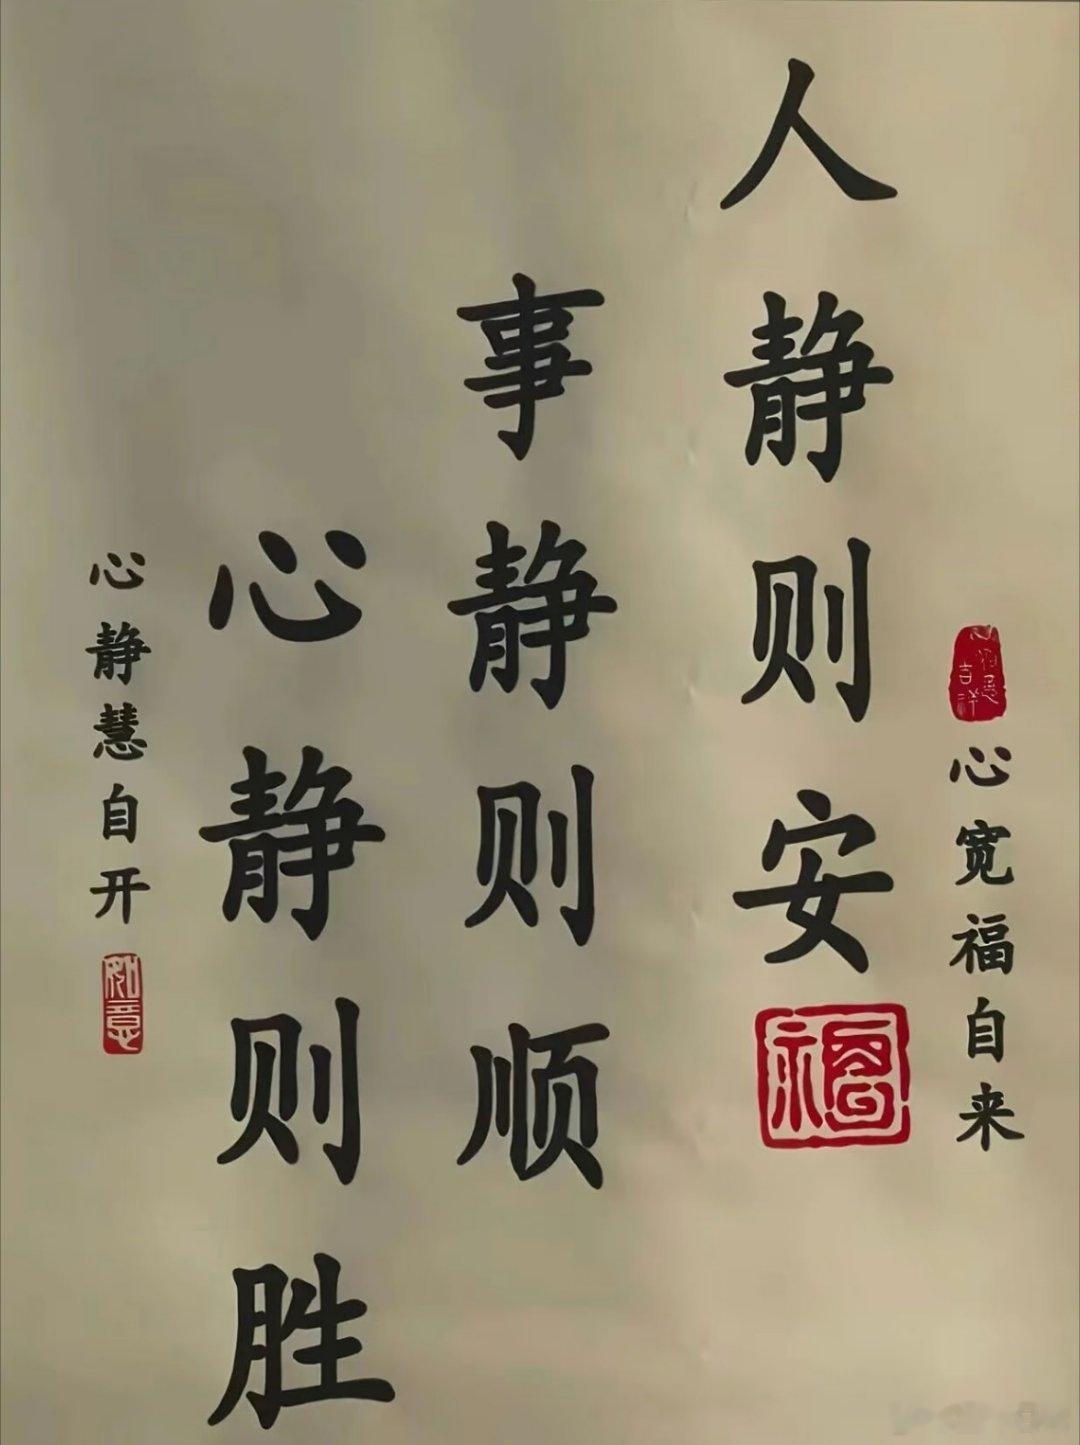 心宽福自来
人静则安
福
事静则顺
心静则胜
心静慧自开
如意